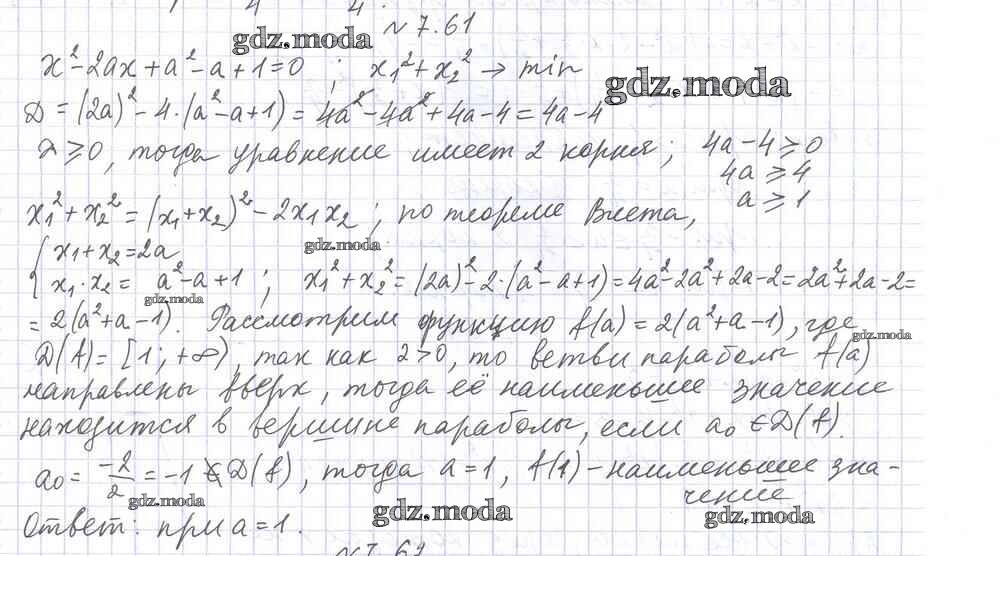 №7.61
gdz.moda
x²-2ax+a²-a+1=0 ; x₁²+x₂² → min
gdz.moda
D = (2a)² - 4·(a²-a+1) = 4a²-4a²+4a-4 = 4a-4
D ≥ 0, тогда уравнение имеет 2 корня; 4a-4 ≥ 0
4a ≥ 4
a ≥ 1
x₁²+x₂² = (x₁+x₂)² - 2x₁x₂ ; по теореме Виета,
{ x₁+x₂ = 2a
gdz.moda
{ x₁·x₂ = a²-a+1 ; x₁²+x₂² = (2a)²-2·(a²-a+1) = 4a²-2a²+2a-2 = 2a²+2a-2 =
gdz.moda
= 2(a²+a-1). Рассмотрим функцию f(a) = 2(a²+a-1), где
gdz.moda
D(f) = [1; +∞), так как 2>0, то ветви параболы f(a)
направлены вверх, тогда её наименьшее значение
находится в вершине параболы, если a₀ ∈ D(f).
a₀ = -2/2 = -1 ∉ D(f), тогда a=1, f(1) - наименьшее зна-
чение
gdz.moda
gdz.moda
gdz.moda
Ответ: при a=1.
№7.62